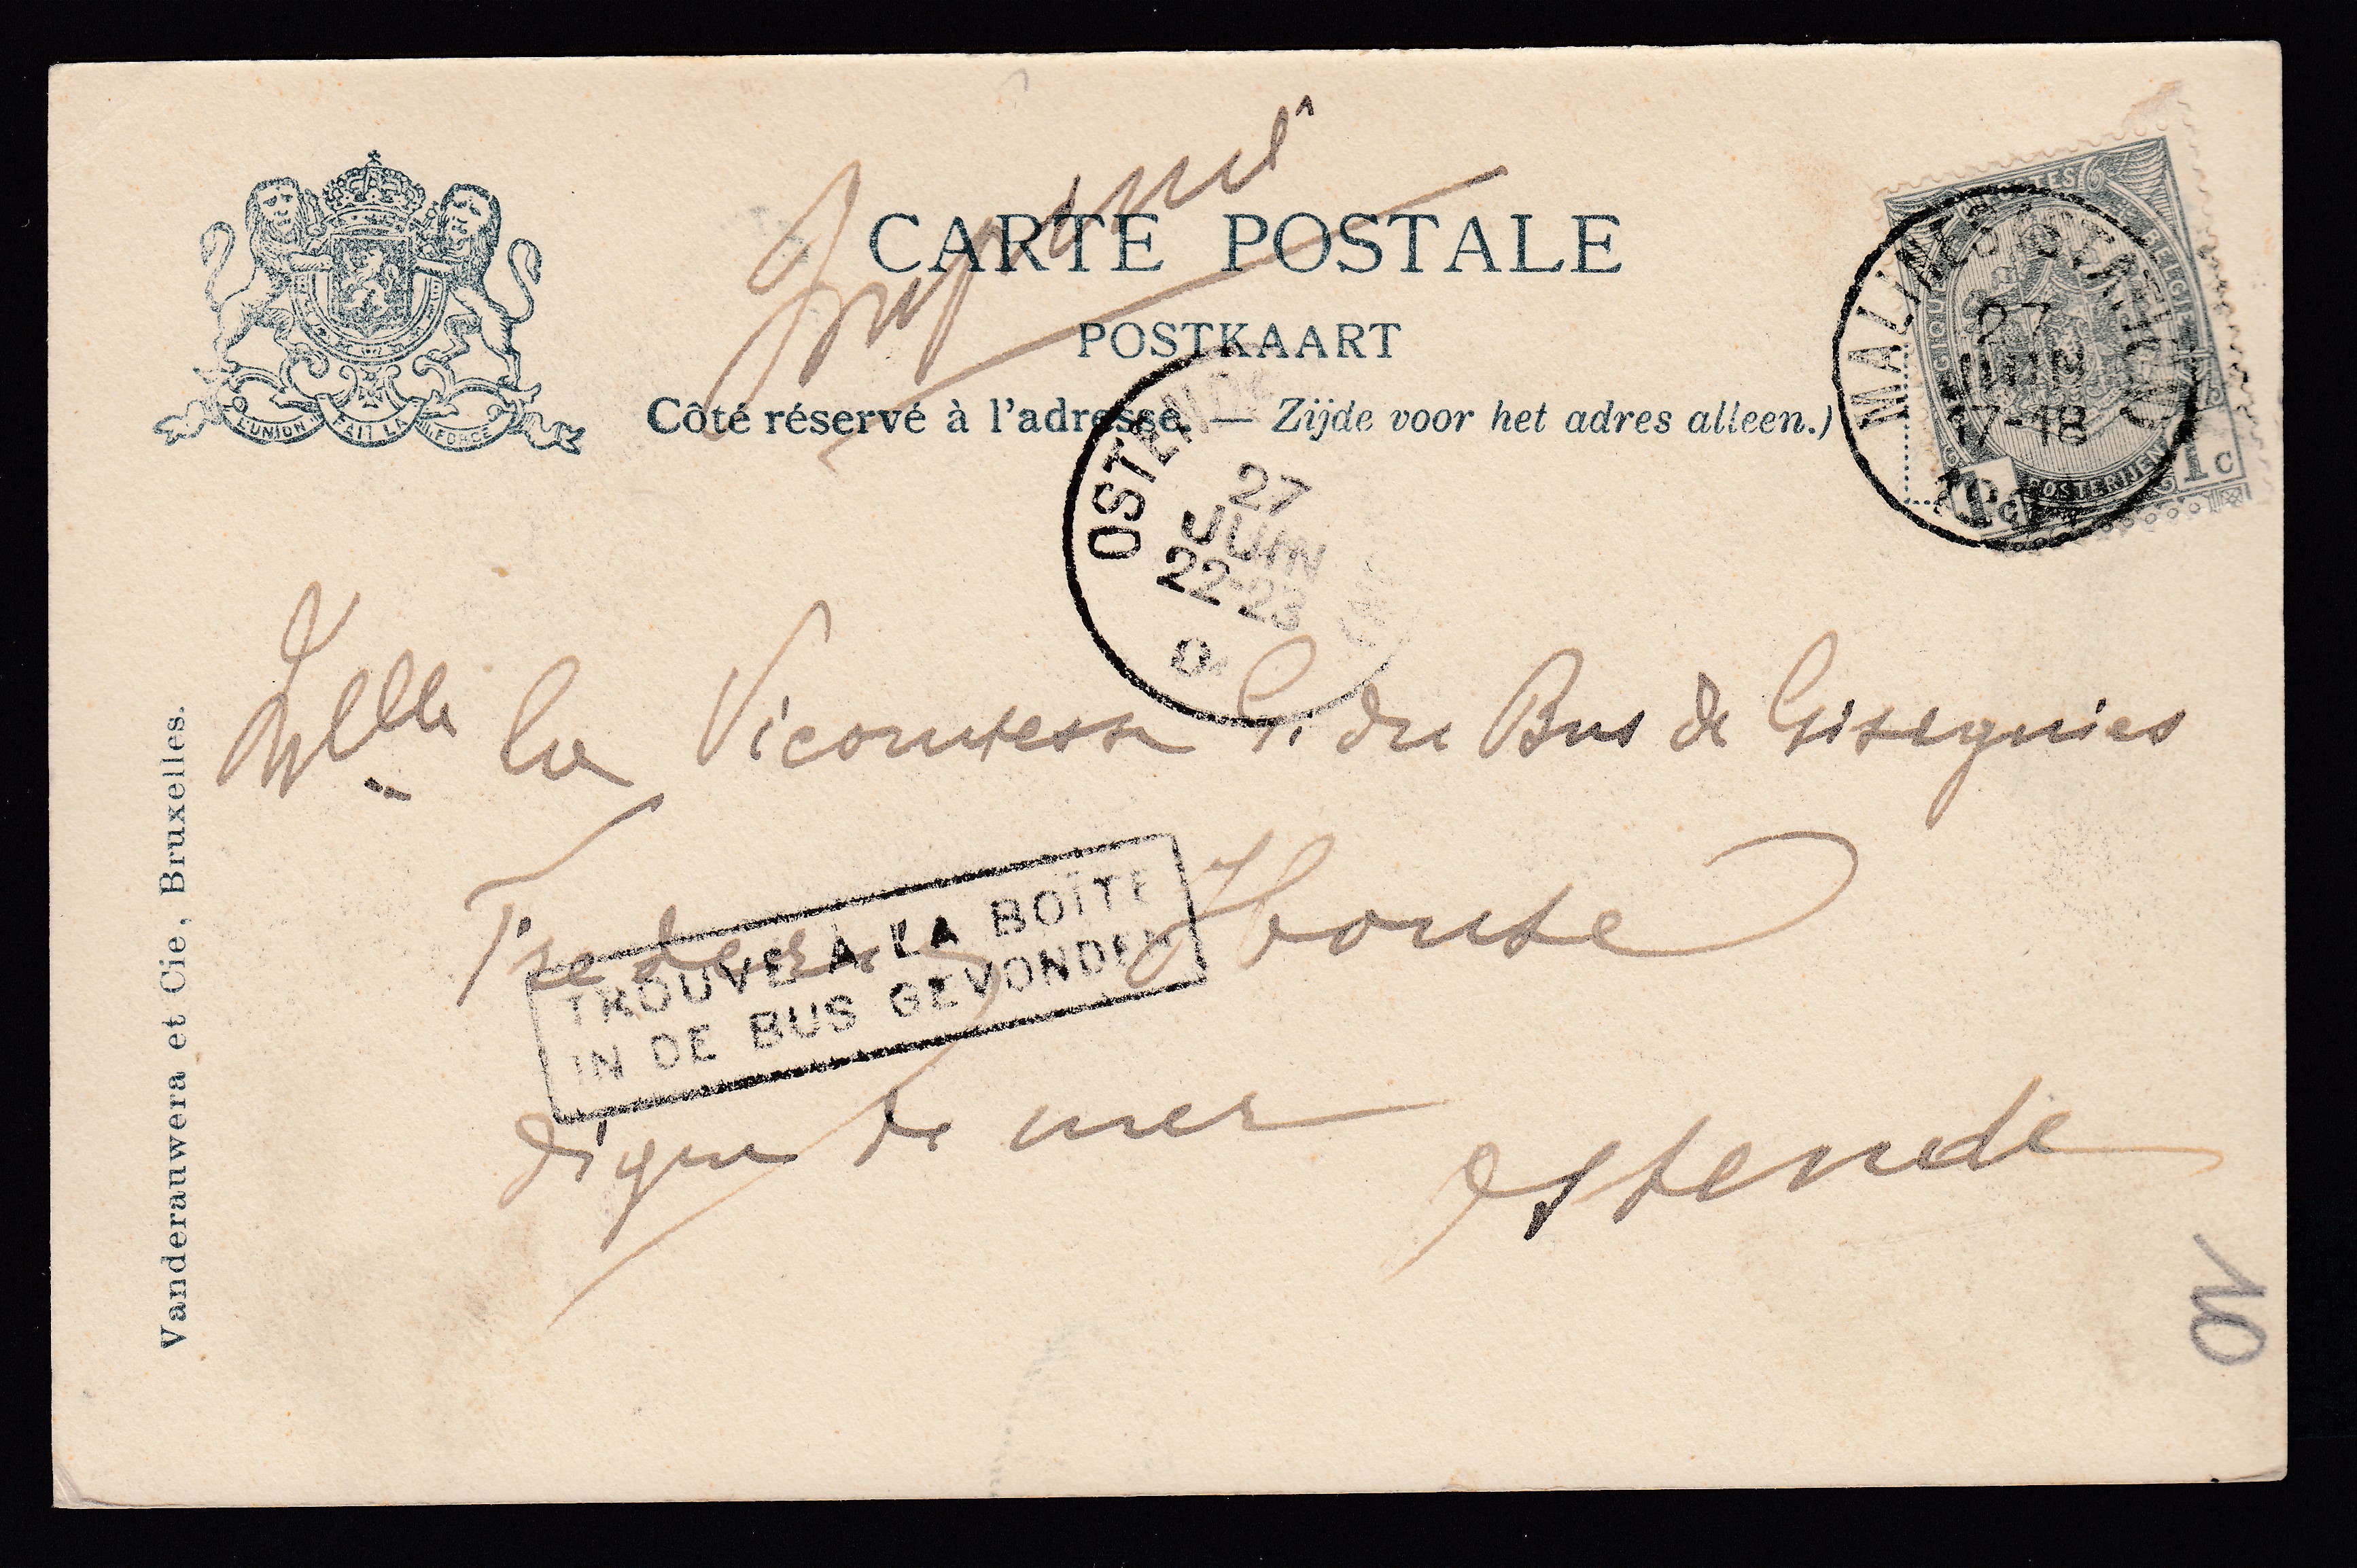 Imprimé
CARTE POSTALE
POSTKAART
Côté réservé à l'adresse. — Zijde voor het adres alleen.)
L'UNION FAIT LA FORCE
POSTES BELGIQUE
BELGIË POSTERIJEN
1c
MALINES (STATION)
27
JUIN
17-18
OSTENDE
27
JUIN
22-23
Mlle la Vicomtesse G. du Bus de Gisignies
House
TROUVE A LA BOITE
IN DE BUS GEVONDEN
digue de mer
Ostende
Vanderauwera et Cie, Bruxelles.